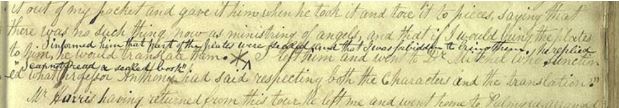 it out of my pocket and gave it him when he took it and tore it to pieces, saying that
there was no such thing now as ministring of angels, and that if I would bring the plates
I informed him that part of the plates were sealed and that I was forbidden to bring them, he replied
to him, he would translate them. I left him and went to Dr Mitchel who sanction
"I cannot read a sealed book".
ed what Professor Anthony had said respecting both the Characters and the translation."
Mr Harris having returned from this tour he left me and went home to